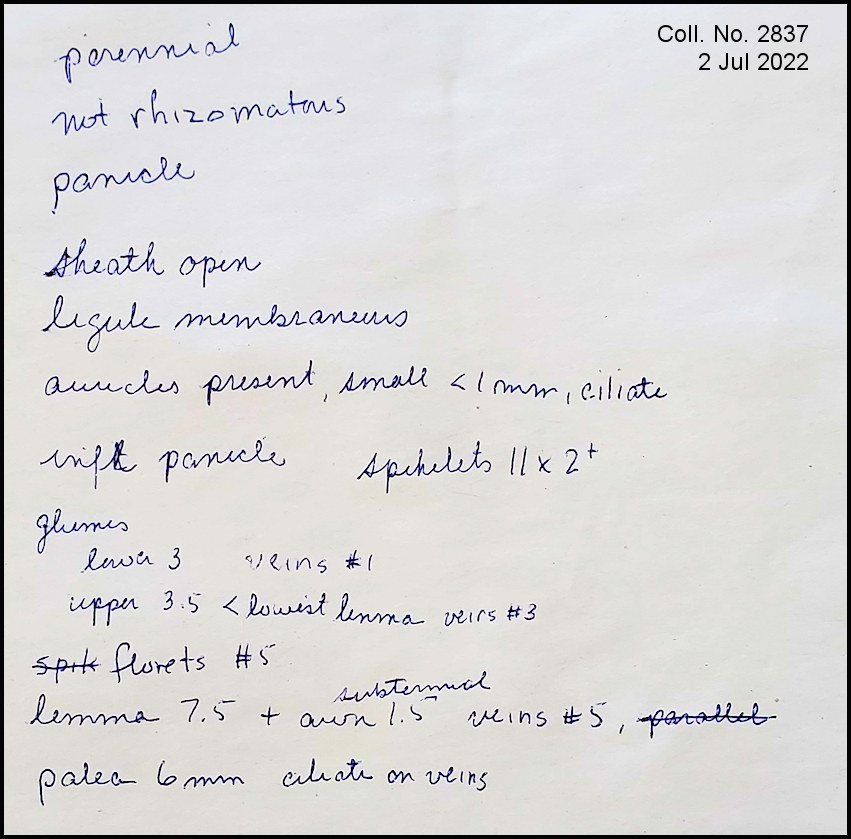 Coll. No. 2837
2 Jul 2022
perennial
not rhizomatous
panicle
sheath open
ligule membraneus
auricles present, small <1mm, ciliate
inflt panicle spikelets 11 x 2+
glumes
lower 3 veins #1
upper 3.5 < lowest lemma veins #3
spik florets #5
subterminal
lemma 7.5 + awn 1.5 veins #5, parallel
palea 6mm ciliate on veins